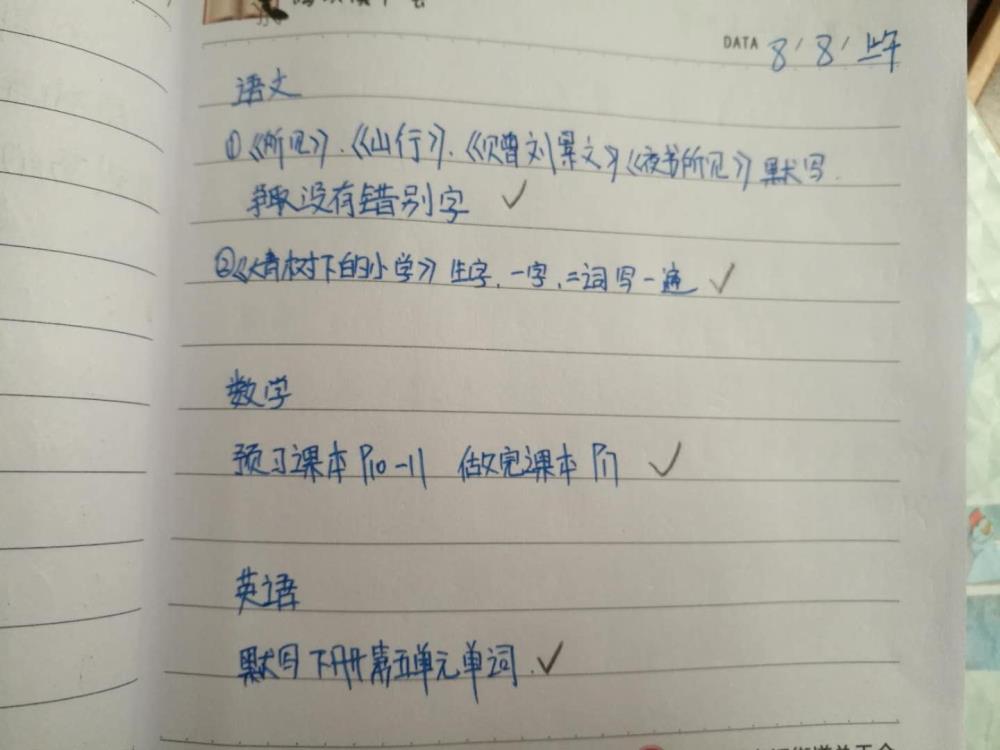 DATA 8/8/上午
语文
①《所见》、《山行》、《赠刘景文》《夜书所见》默写.
争取没有错别字 ✓
②《大青树下的小学》生字,一字,二词写一遍 ✓
数学
预习课本P10-11 做完课本P11 ✓
英语
默写下册第五单元单词. ✓